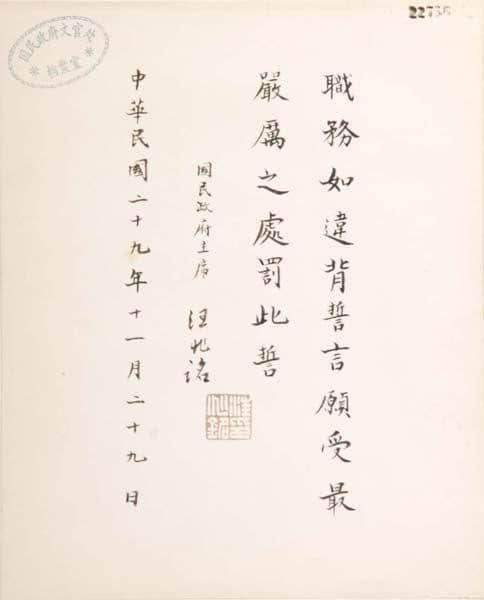 22736
國民政府文官處
檔案室
職務如違背誓言願受最
嚴厲之處罰此誓
國民政府主席 汪兆銘
汪兆銘
中華民國二十九年十一月二十九日